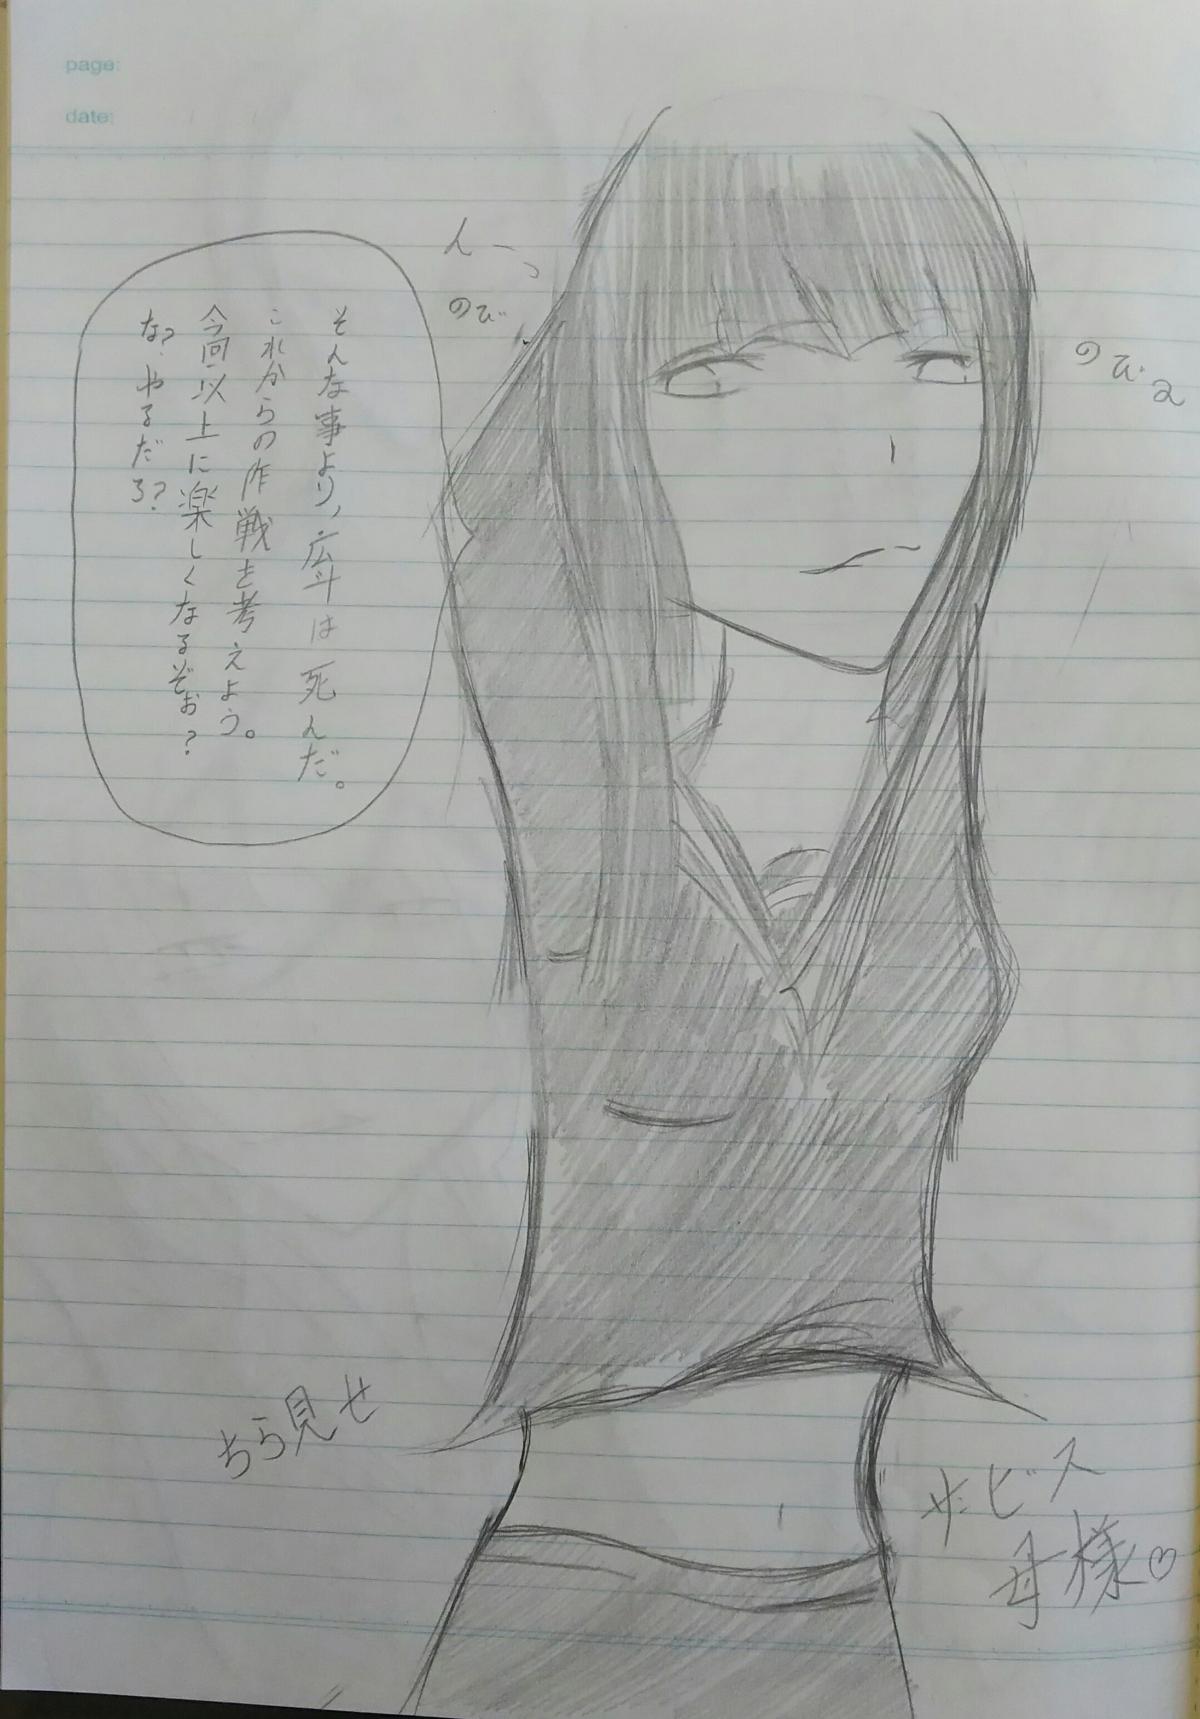 page:
date:
んーっ
のび
のびる
そんな事より、広斗は死んだ。
これからの作戦を考えよう。
今回以上に楽しくなるぞぉ?
な?やるだろ?
ちら見せ
サービス
母様♡